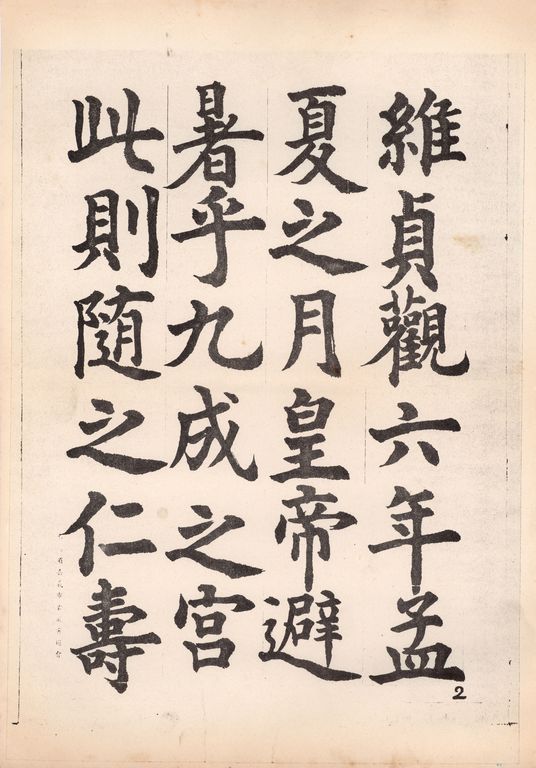 維貞觀六年孟
夏之月皇帝避
暑乎九成之宮
此則随之仁壽
2